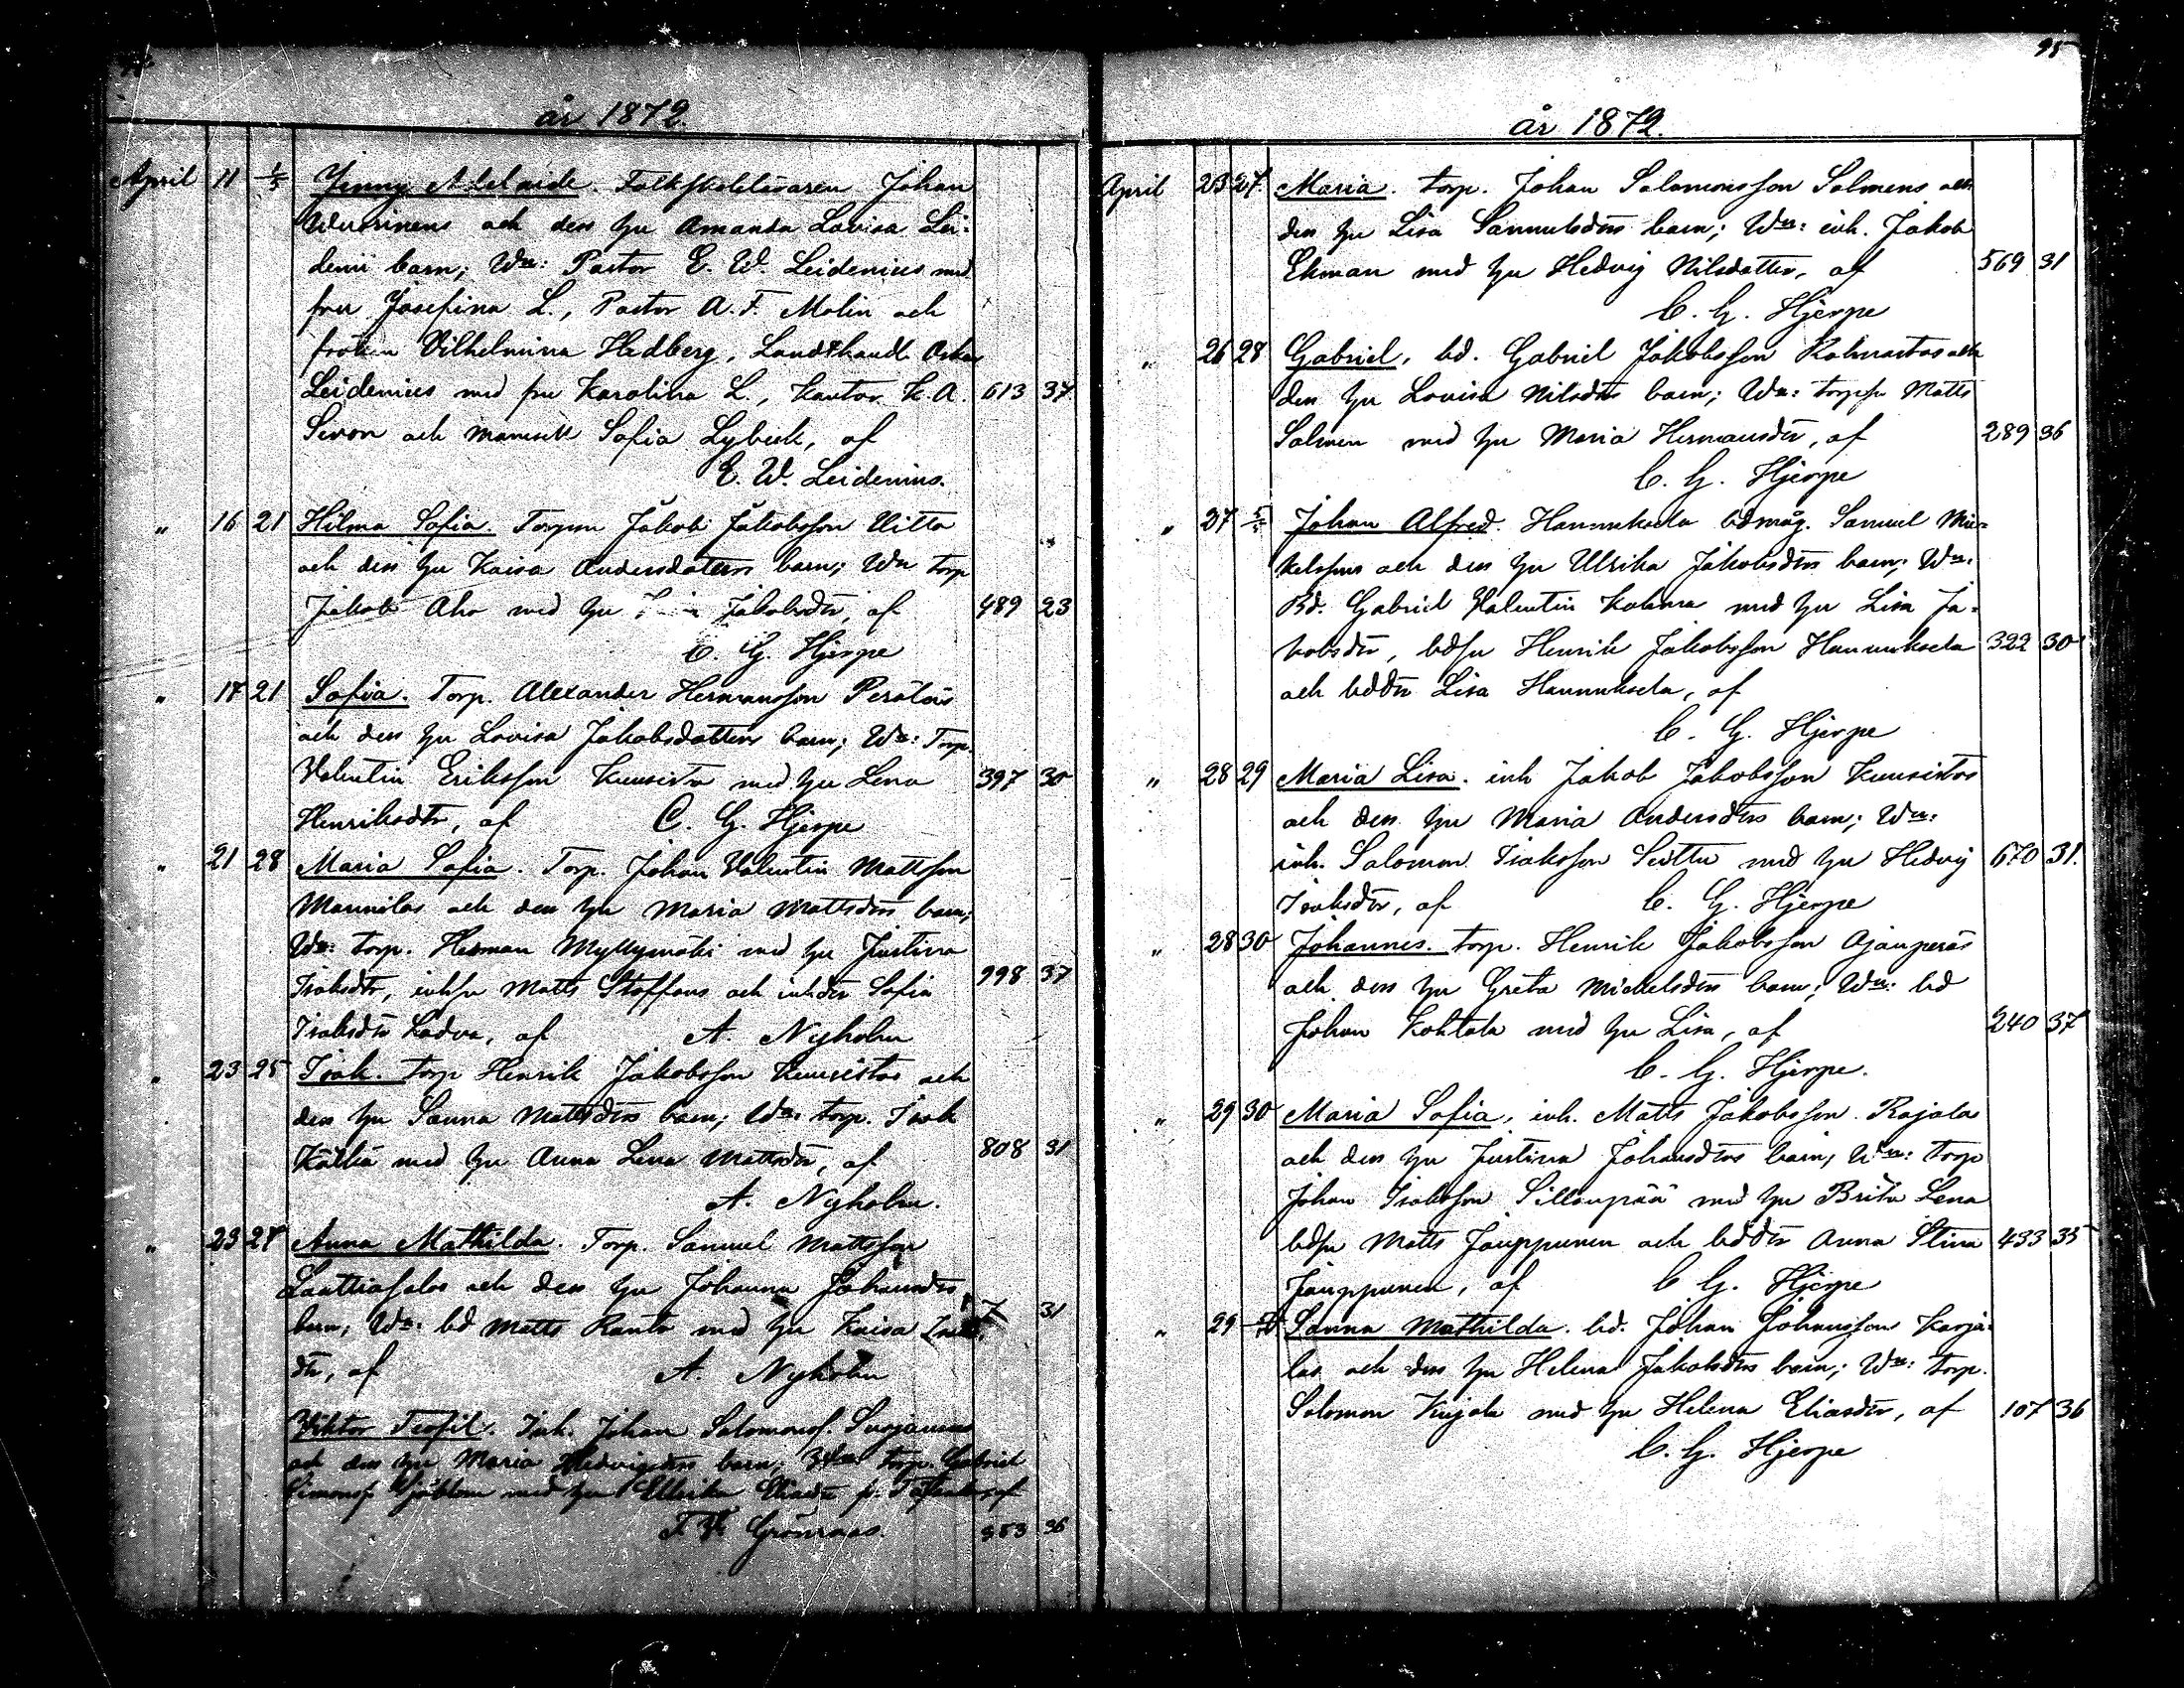 år 1872.
April 11 1/5 Jenny Adelaide. Folkskoleläraren Johan
och dess hu Amanda Lovisa Lei-
denii barn; Wn: Pastor E. W. Leidenius med
fru Josefina L., Pastor A. F. Molin och
fröken Vilhelmina Hedberg, Landthandl. Oskar
Leidenius med fru Karolina L., Kantor K. A. 613 37
Siren och mamsell Sofia Lybeck, af
E. W. Leidenius.
" 16 21 Hilma Sofia. Torparen Jakob Jakobsson Uitto
och dess hu Kaisa Andersdotters barn; Wn torp
Jakob Aho med hu Jakobsdr, af 489 23
C. G. Hjerpe
" 17 21 Sofia. Torp. Alexander Hermansson Peräläs
och dess hu Lovisa Jakobsdotters barn; Wn: Torp.
Valentin Eriksson Kuusisto med hu Lena 397 30
Henriksdtr, af C. G. Hjerpe
" 21 28 Maria Sofia. Torp. Johan Valentin Mattsson
Mannilas och dess hu Maria Mattsdrs barn;
Wn: torp. Herman Myllymäki med hu Justina
Isaksdtr, inhsn Matts Staffans och inhdtr Sofia 998 37
Isaksdtr Ladva, af A. Nyholm
" 23 25 Isak. torp Henrik Jakobsson Kuusistos och
dess hu Sanna Mattsdrs barn; Wn: torp. Isak
Källiä med hu Anna Lena Mattsdr, af 808 31
A. Nyholm.
" 23 27 Anna Mathilda. Torp. Samuel Mattsson
och dess hu Johanna Johansdrs
barn; Wn: bd Matts Ranta med hu Kaisa 7 31
dr, af A. Nyholm
Viktor Teofil. Inh. Johan Salomonss. Suojanen
och dess hu Maria Hedvigsdrs barn; Wn torp. Gabriel
Simonss. Sjöblom med hu Ullrika Eliasdr, af
F. W. Grönroos. 953 36
95
år 1872.
April 23 27 Maria. torp. Johan Salomonsson Salmens och
dess hu Lisa Samuelsdrs barn; Wn: inh. Jakob
Ekman med hu Hedvig Nilsdotter, af 569 31
C. G. Hjerpe
" 26 28 Gabriel, bd. Gabriel Jakobsson och
dess hu Lovisa Nilsdrs barn; Wn: torpsn Matts
Salmen med hu Maria Hermansdr, af 289 36
C. G. Hjerpe
" 27 5/5 Johan Alfred. Hannuksela bdmåg. Samuel Mi-
kelssons och dess hu Ulrika Jakobsdrs barn; Wn:
Bd. Gabriel Valentin Kolima med hu Lisa Ja-
kobsdr, bdsn Henrik Jakobsson Hannuksela 322 30
och bddr Lisa Hannuksela, af
C. G. Hjerpe
" 28 29 Maria Lisa. inh Jakob Jakobsson Kuusistos
och dess hu Maria Andersdrs barn; Wn:
inh. Salomon Isaksson med hu Hedvig 670 31.
Isaksdr, af C. G. Hjerpe
" 28 30 Johannes. torp. Henrik Jakobsson Ajanperäs
och dess hu Greta Mickelsdrs barn; Wn: bd
Johan Kohtala med hu Lisa, af 240 37
C. G. Hjerpe.
" 29 30 Maria Sofia, inh. Matts Jakobsson Rajalas
och dess hu Justina Johansdrs barn; Wn: torp
Johan Isaksson Sillanpää med hu Brita Lena
bdsn Matts Jauppunen och bddr Anna Stina 433 35
Jauppunen, af C. G. Hjerpe
" 29 Sanna Mathilda. bd. Johan Johansson Karja-
las och dess hu Helena Jakobsdrs barn; Wn: torp.
Salomon Kujala med hu Helena Eliasdr, af 107 36
C. G. Hjerpe